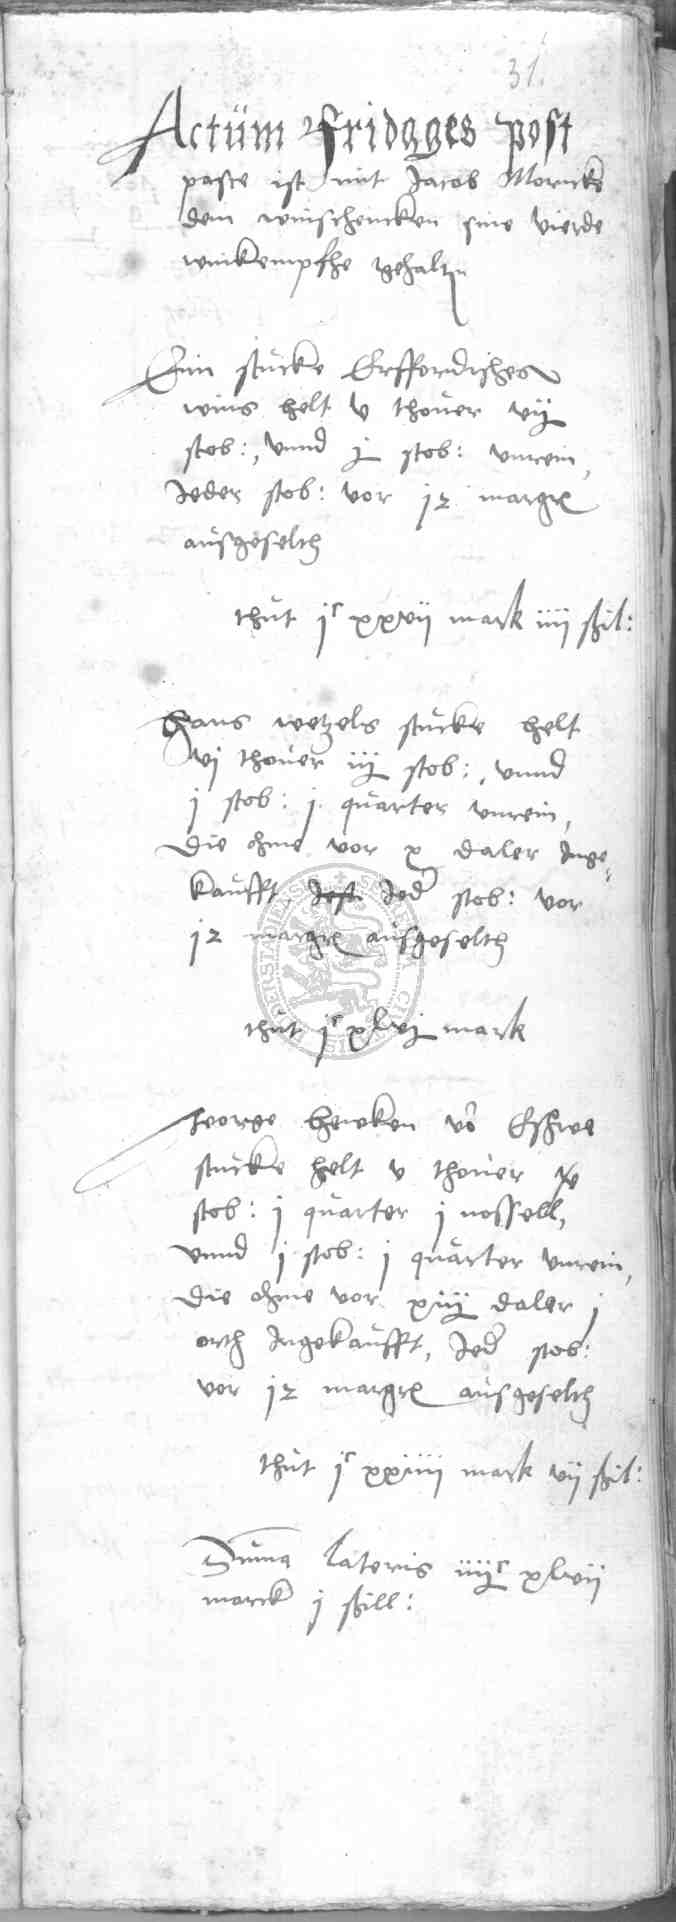 31.
Actum Fridages post
pasce ist mit Jacob Moricke
dem winschencken sine vierde
winkempfhe gehaltn
Ein stucke Erffordisches
wins helt v thover vij
stob:, vnnd j stob: vnrein,
Jeder stob: vor 12 margr
ausgeselth
thut jc xxvij mark iiij ßil:
Hans wetzels stucke helt
vj thover iij stob:, vnnd
j stob: j quarter vnrein,
die ohme vor x daler Inge,
kaufft, Jeder stob: vor
12 margr ausgeselth
thut jc xlvj mark
George Heneken vo Eshwe
stucke helt v thover xe
stob: j quarter j nossell,
vnnd j stob: j quarter vnrein,
die ohme vor xiij daler j
orth Ingekaufft, Jeder stob:
vor 12 margr ausgeselth
thut jc xxiiij mark vij ßil:
Suma lateris iiijc xlvij
marck j ßill: